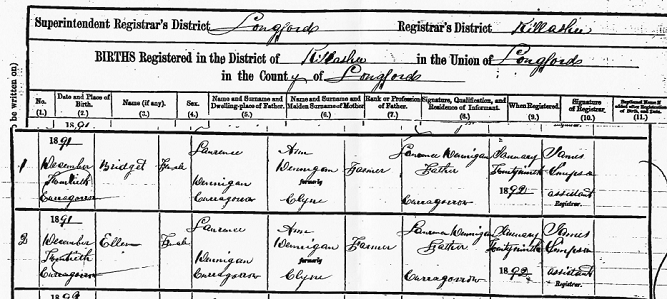 Superintendent Registrar's District Longford Registrar's District Killashee
BIRTHS Registered in the District of Killashee in the Union of Longford
in the County of Longford
be written on)
No. Date and Place of Birth. Name (if any). Sex. Name and Surname and Dwelling-place of Father. Name and Surname and Maiden Surname of Mother. Rank or Profession of Father. Signature, Qualification, and Residence of Informant. When Registered. Signature of Registrar.
(1.) (2.) (3.) (4.) (5.) (6.) (7.) (8.) (9.) (10.) (11.)
1891 Laurence Ann Laurence Dennigan January James
1 December Bridget Female Dennigan Farmer Father
Dennigan formerly 1892 assistant
Carragorrow Carragorrow Clyne Carragorrow Registrar.
1891 Laurence Ann Laurence Dennigan January James
2 December Ellen Female Dennigan Farmer Father
Dennigan formerly 1892 assistant
Carragorrow Carragorrow Clyne Carragorrow Registrar.